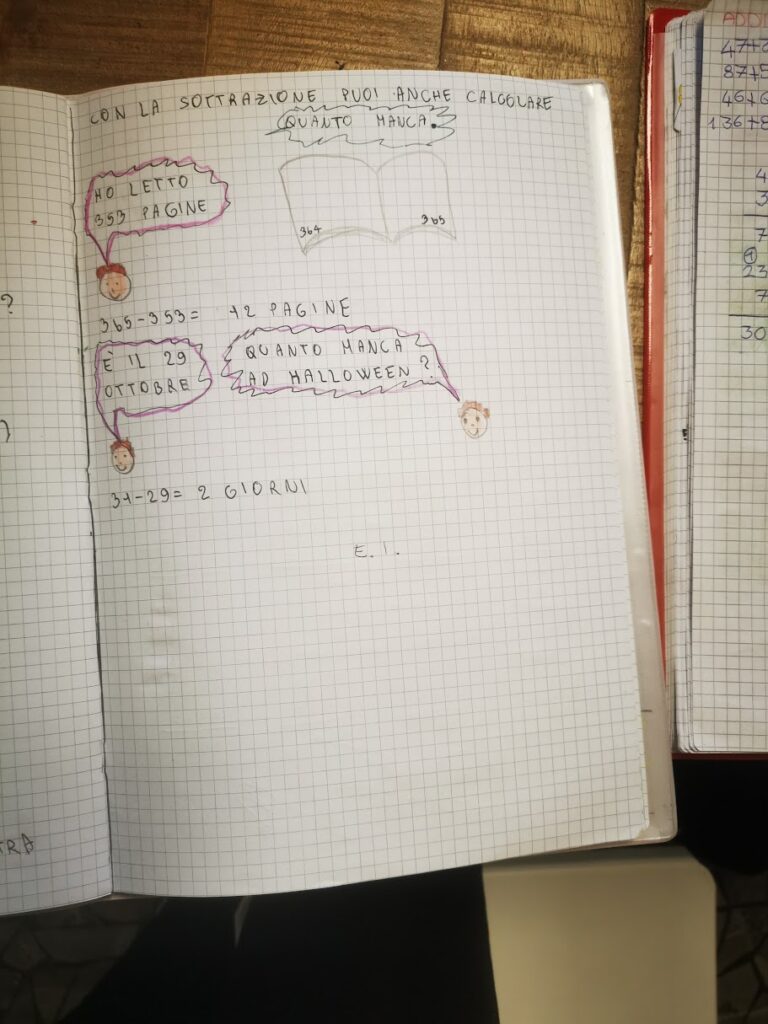 CON LA SOTTRAZIONE PUOI ANCHE CALCOLARE
QUANTO MANCA.
HO LETTO
353 PAGINE
364
365
365-353= 12 PAGINE
È IL 29
OTTOBRE
QUANTO MANCA
AD HALLOWEEN?
31-29= 2 GIORNI
E. I.
?
)
TRA
ADDI
47+
87+5
46+6
136+8
4
3
7
1
23
7
30